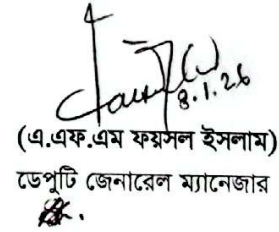 8.1.26
(এ.এফ.এম ফয়সল ইসলাম)
ডেপুটি জেনারেল ম্যানেজার